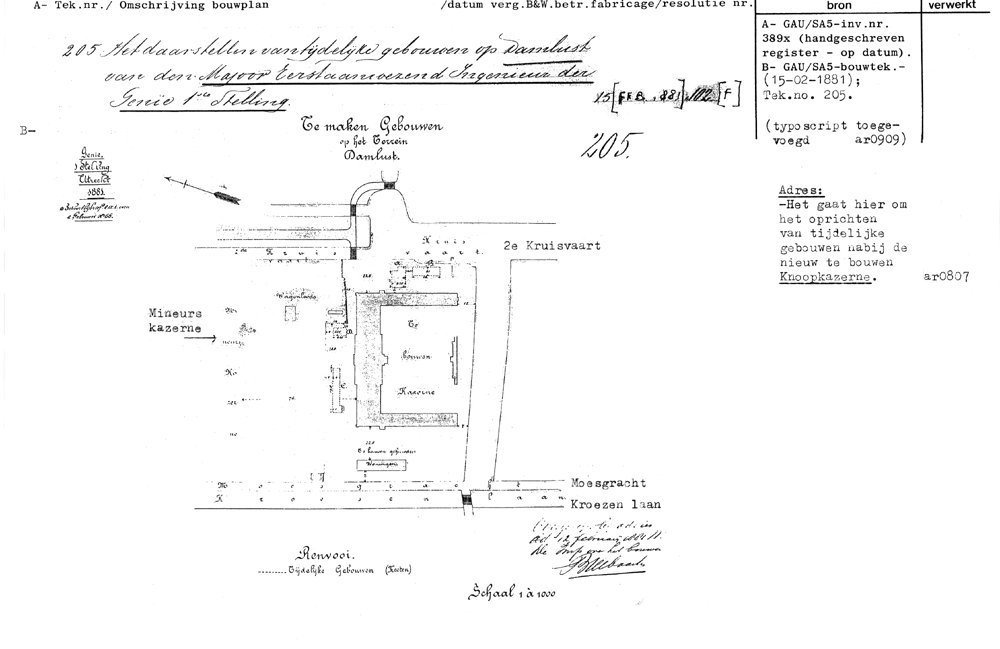 A- Tek.nr./ Omschrijving bouwplan
/datum verg.B&W.betr.fabricage/resolutie nr.
bron
verwerkt
205 Het daarstellen van tijdelijke gebouwen op Damlust
van den Majoor Eerstaanwezend Ingenieur der
Genie 1ste Stelling.
15 [FEB. 881] 102 [F]
205.
A- GAU/SA5-inv.nr.
389x (handgeschreven
register - op datum).
B- GAU/SA5-bouwtek.-
(15-02-1881);
Tek.no. 205.
(typoscript toege-
voegd ar0909)
Adres:
-Het gaat hier om
het oprichten
van tijdelijke
gebouwen nabij de
nieuw te bouwen
Knoopkazerne. ar0807
B-
Te maken Gebouwen
op het Terrein
Damlust.
Genie,
1 Stelling
Utrecht
1881.
Kruis
vaart.
2e Kruisvaart
Kruis
vaart.
Wagenloods
Mineurs
kazerne
Te
bouwen
Kazerne
C.
Te bouwen
Woningen
Moesgracht
Moesgracht
Kroesenlaan
Kroezen laan
Renvooi.
Tijdelijke Gebouwen (Keeten)
Schaal 1 à 1000